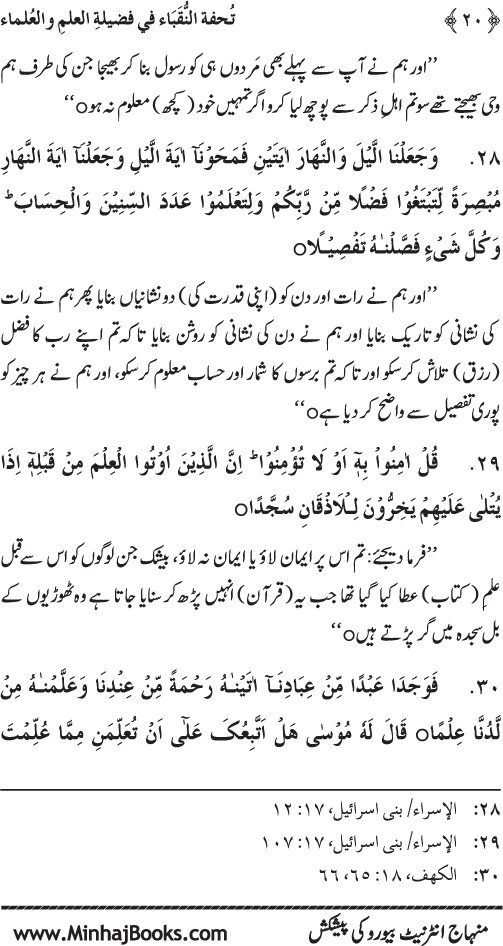 ﴿ ۲۰ ﴾ تُحفة النُّقَبَاء في فضيلةِ العلمِ والعُلماء
’’اور ہم نے آپ سے پہلے بھی مَردوں ہی کو رسول بنا کر بھیجا جن کی طرف ہم
وحی بھیجتے تھے سو تم اہلِ ذکر سے پوچھ لیا کرو اگر تمہیں خود (کچھ) معلوم نہ ہوo‘‘
۲۸. وَجَعَلْنَا الَّيْلَ وَالنَّهَارَ اٰيَتَيْنِ فَمَحَوْنَآ اٰيَةَ الَّيْلِ وَجَعَلْنَآ اٰيَةَ النَّهَارِ
مُبْصِرَةً لِّتَبْتَغُوْا فَضْلًا مِّنْ رَّبِّکُمْ وَلِتَعْلَمُوْا عَدَدَ السِّنِيْنَ وَالْحِسَابَ ؕ
وَکُلَّ شَیْءٍ فَصَّلْنٰـهُ تَفْصِيْـلًاo
’’اور ہم نے رات اور دن کو (اپنی قدرت کی) دو نشانیاں بنایا پھر ہم نے رات
کی نشانی کو تاریک بنایا اور ہم نے دن کی نشانی کو روشن بنایا تاکہ تم اپنے رب کا فضل
(رزق) تلاش کر سکو اور تاکہ تم برسوں کا شمار اور حساب معلوم کر سکو، اور ہم نے ہر چیز کو
پوری تفصیل سے واضح کر دیا ہےo‘‘
۲۹. قُلْ اٰمِنُوْا بِهٖٓ اَوْ لَا تُؤْمِنُوْا ؕ اِنَّ الَّذِيْنَ اُوْتُوا الْعِلْمَ مِنْ قَبْلِهٖٓ اِذَا
يُتْلٰی عَلَيْهِمْ يَخِرُّوْنَ لِـلْاَذْقَانِ سُجَّدًاo
’’فرما دیجئے: تم اس پر ایمان لاؤ یا ایمان نہ لاؤ، بیشک جن لوگوں کو اس سے قبل
علمِ (کتاب) عطا کیا گیا تھا جب یہ (قرآن) انہیں پڑھ کر سنایا جاتا ہے وہ ٹھوڑیوں کے
بل سجدہ میں گر پڑتے ہیںo‘‘
۳۰. فَوَجَدَا عَبْدًا مِّنْ عِبَادِنَـآ اٰتَيْنٰـهُ رَحْمَةً مِّنْ عِنْدِنَا وَعَلَّمْنٰـهُ مِنْ
لَّدُنَّا عِلْمًاo قَالَ لَهٗ مُوْسٰی هَلْ اَتَّبِعُکَ عَلٰٓی اَنْ تُعَلِّمَنِ مِمَّا عُلِّمْتَ
۲۸: الإسراء/ بنی اسرائیل، ۱۷: ۱۲
۲۹: الإسراء/ بنی اسرائیل، ۱۷: ۱۰۷
۳۰: الکهف، ۱۸: ۶۵، ۶۶
منہاج انٹرنیٹ بیورو کی پیشکش www.MinhajBooks.com